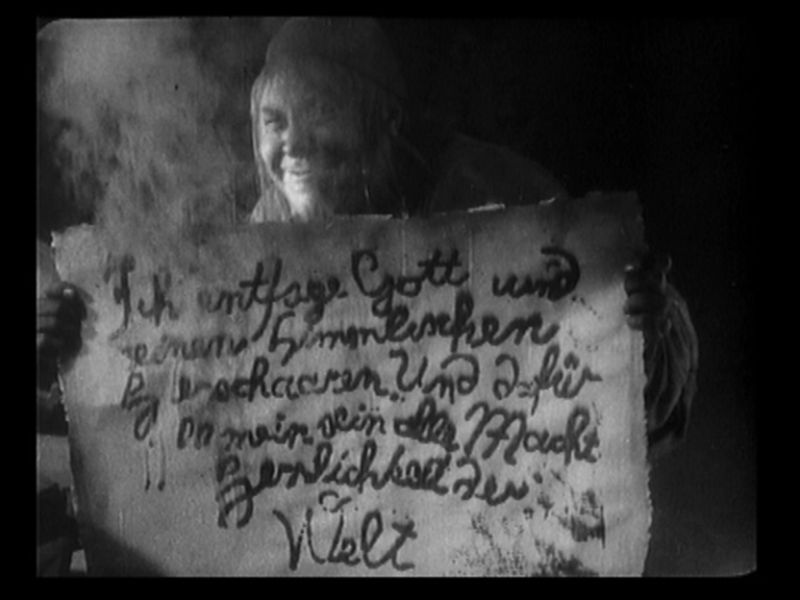 Ich entsage Gott und
seinen himmlischen
Heerschaaren Und dafür
mein sein die Macht
Herrlichkeit der
Welt